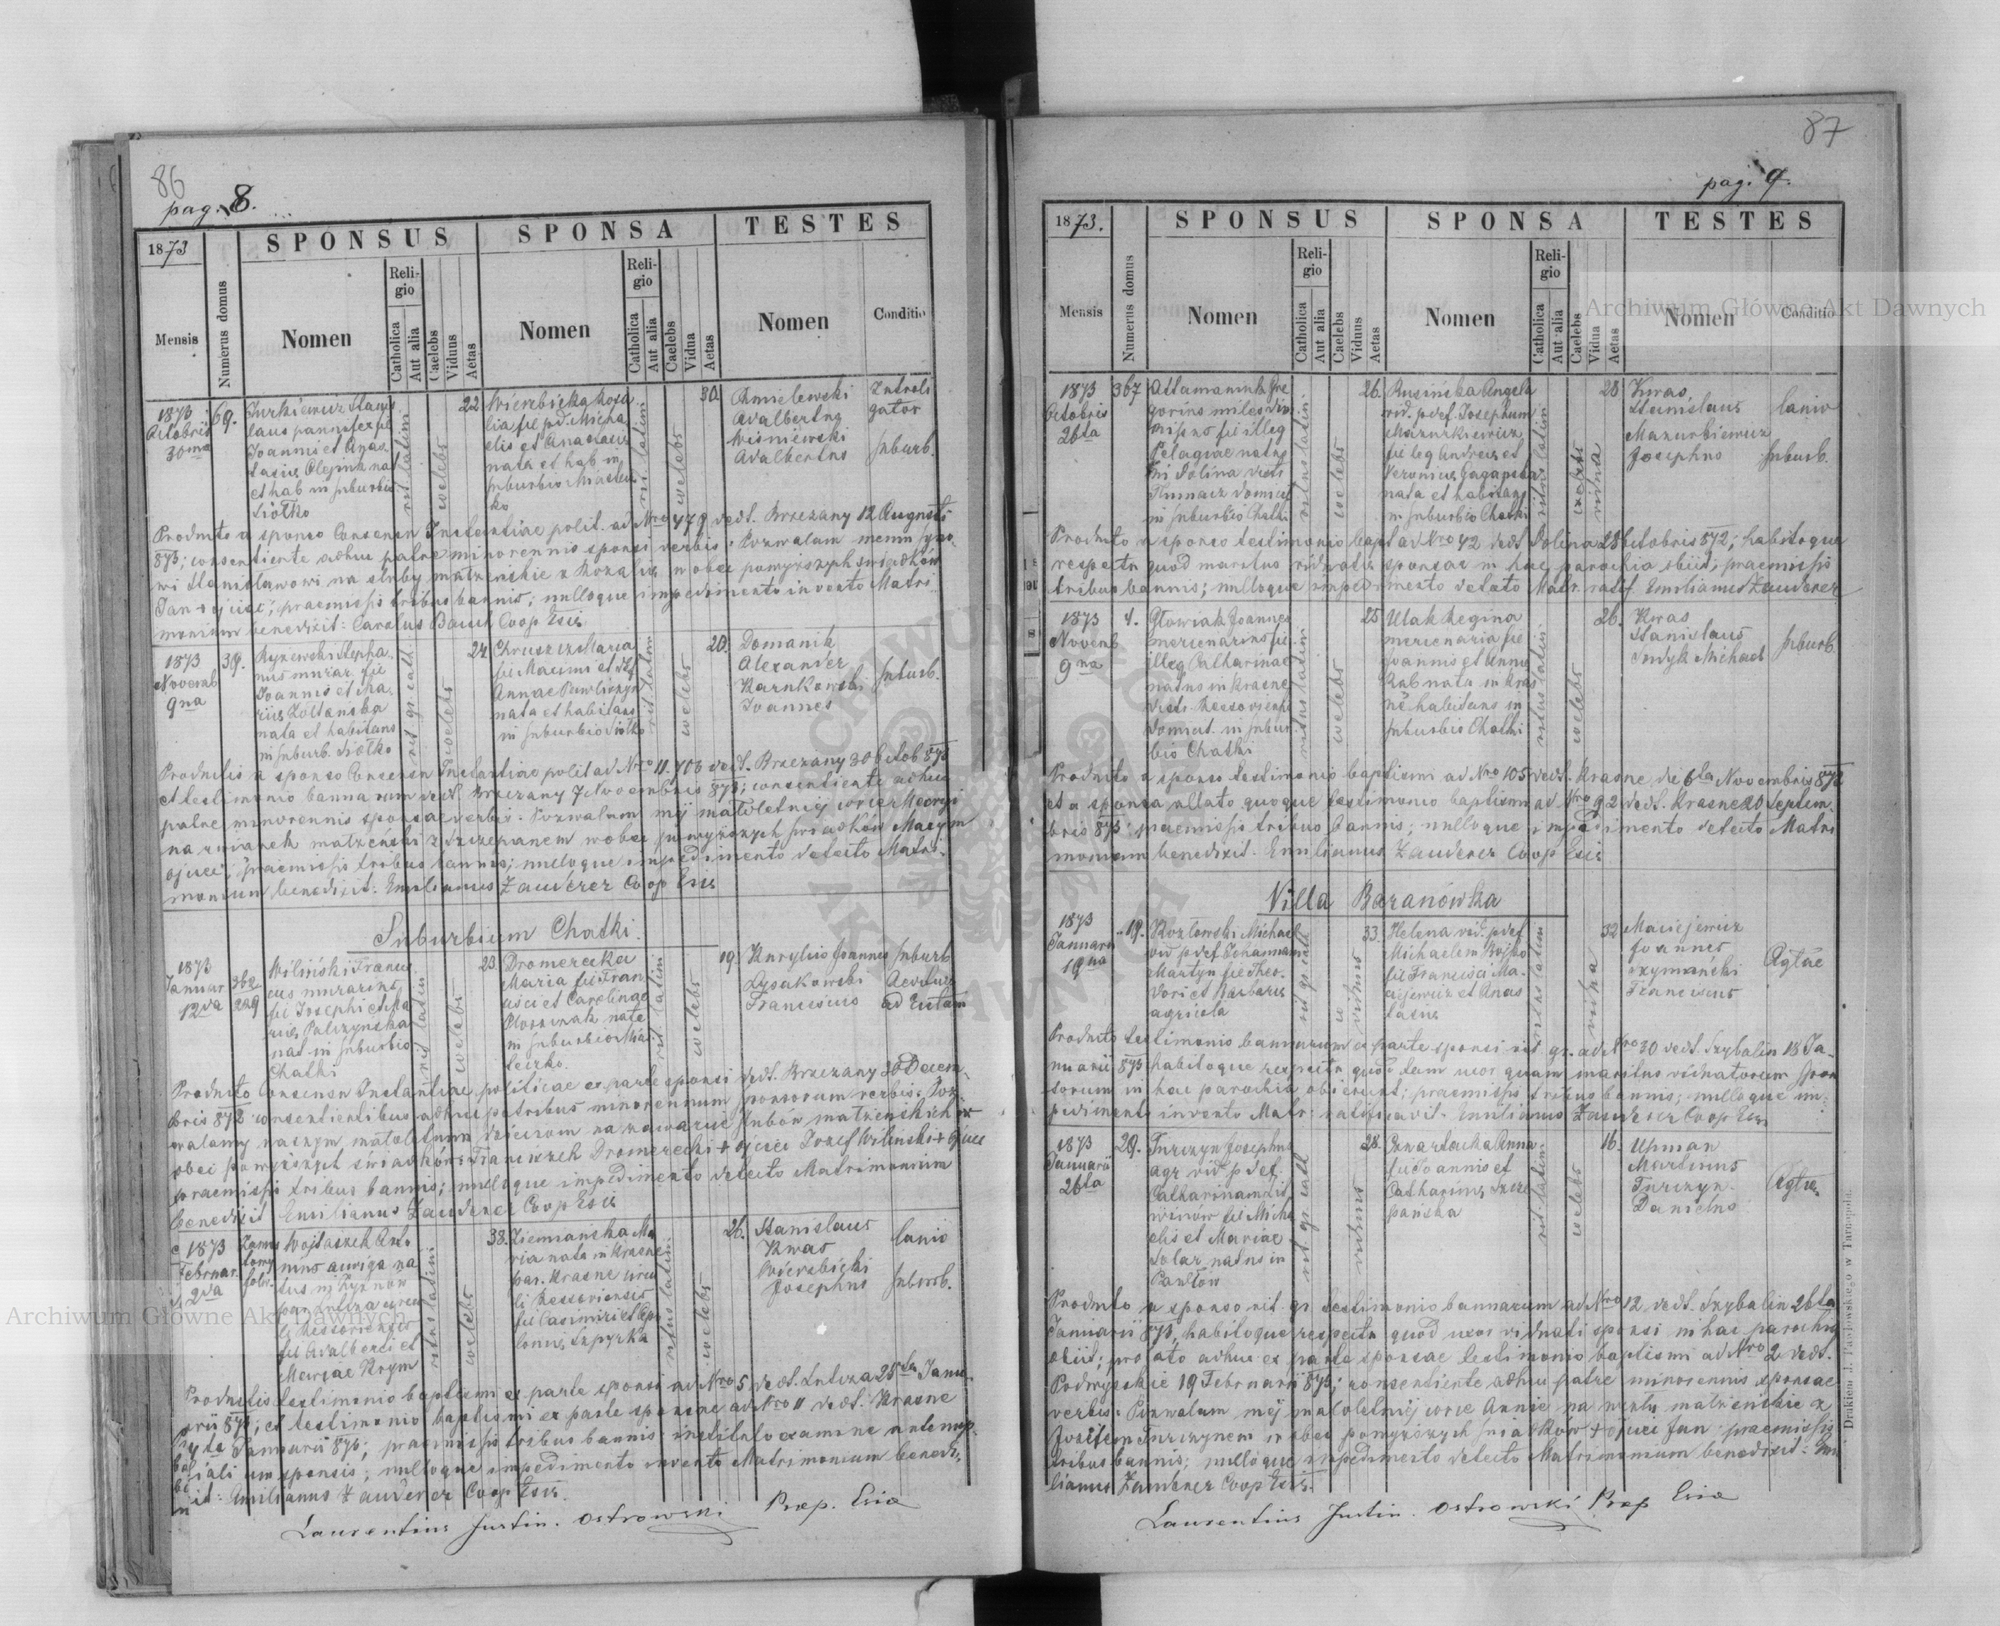 86
pag. 8.
1873
SPONSUS
SPONSA
TESTES
Mensis
Numerus domus
Nomen
Religio
Catholica
Aut alia
Caelebs
Viduus
Aetas
Nomen
Religio
Catholica
Aut alia
Caelebs
Vidua
Aetas
Nomen
Conditio
1873
Octobris
30ma
69.
Jurkiewicz Stanis
laus pannifex fil
Joannis et Anas
tasiae Olejnik nat
et hab in suburbio
Siołko
rit latini
coelebs
22.
Wierzbicka Rosa
lia fil pd. Micha
elis et Anastasiae
nata et hab in
suburbio Miastecz
ko
rit. latini
coelebs
30.
Chmielewski
Adalbertus
Wiśniewski
Adalbertus
Introli
gator
suburb.
Producto a sponso Consensu Instantiae polit. ad Nro 479 ddt. Brzezany 12 Augusti
873; consentiente adhuc patre minorennis sponsi verbis: Pozwalam memu syno-
wi Stanisławowi na śluby małżeńskie z Rozalią w obec powyższych świadków
Jan + ojciec; praemissis tribus bannis; nulloque impedimento invento Matri
monium benedixit: Carolus Baud Coop Exis
1873
Novemb
9na
39.
Ryzewski Stepha
nus murar. fil
Joannis et Ma
riae Zołtanska
nata et habitans
in suburb. Siołko
rit gr cath
coelebs
24.
Chruszcz Maria
fil Maximi et
Annae Pawliczyn
nata et habitans
in suburbio Siołko
rit latini
coelebs
20.
Domanik
Alexander
Karnkowski
Joannes
suburb.
Productis a sponso Consensu Instantiae polit ad Nro 11.703 ddt. Brzezany 30 Octob 873
et testimonio bannarum ddt Brzezany 7 Novembris 873; consentiente adhuc
patre minorennis sponsae verbis: Pozwalam mej małoletniej córce Maryi
na związek małżeński z Szczepanem wobec powyższych świadków Maxym
ojciec; praemissis tribus bannis; nulloque impedimento detecto Matri-
monium benedixit: Emilianus Zauderer Coop Exis
Suburbium Chatki.
1873
Januar
12da
362
229
Wiliński Francis
cus murarius
fil Josephi et Ma
riae Palczyńska
nat in suburbio
Chatki
rit latini
coelebs
23.
Dromerecka
Maria fil Fran
cisci et Carolinae
nata
in suburbio Mia
steczko.
rit latini
coelebs
19.
Kurylio Joannes
Lysakowski
Franciscus
suburb
Aedituus
ad Eccliam
Producto Consensu Instantiae politicae ex parte sponsi ddt. Brzezany 30 Decem-
bris 872 consentientibus adhuc patribus minorennum sponsorum verbis: Poz
walamy naszym małoletnim dzieciom na zawarcie ślubów małżeńskich w
obec powyższych świadków: Franciszek Dromerecki + ojciec Józef Wiliński + ojciec
praemissis tribus bannis; nulloque impedimento detecto Matrimonium
benedixit Emilianus Zauderer Coop Exis
1873
Februar.
2da
Wojtaszek An
nius auriga na
tus in
par. Lutcza circu
li Rzeszoviensis
fil Adalberti et
Mariae Krym
ritus latini
coelebs
38.
Ziemiańska Ma
ria nata in Krasne
par. Krasne circu
li Rzeszoviensis
fil Casimiri et Apo
loniae Szpyrka
ritus latini
coelebs
26.
Stanislaus
Kwas
Wierzbicki
Josephus
lanio
suburb.
Productis testimonio baptismi ex parte sponsi ad Nro 5 ddt. Lutcza 25ta Janu-
arii 873; et testimonio baptismi ex parte sponsae ad Nro 11 ddt. Krasne
Januarii 873; praemissis tribus bannis instituto examine antenup-
tiali cum sponsis; nulloque impedimento invento Matrimonium benedi-
xit: Emilianus Zauderer Coop Exis.
Laurentius Justin. Ostrowski Praep. Exia
87
pag. 9.
1873.
SPONSUS
SPONSA
TESTES
Mensis
Numerus domus
Nomen
Religio
Catholica
Aut alia
Caelebs
Viduus
Aetas
Nomen
Religio
Catholica
Aut alia
Caelebs
Vidua
Aetas
Nomen
Conditio
1873
Octobris
26ta
367
Attamaniuk Gre
gorius miles
fil illeg
Pelagiae natus
in Dolina distr
Tłumacz domicil
in suburbio Chatki
ritus latin.
coelebs
26.
Rusińska Angela
vid. p def Josephum
Mazurkiewicz
fil leg Andreae et
Veronicae
nata et habitans
in suburbio Chatki
ritus latini
vidua
28.
Kwas
Stanislaus
Mazurkiewicz
Josephus
lanio
suburb.
Producto a sponso testimonio bapt ad Nro 42 ddt Dolina 28 Octobris 872; habitoque
respectu quod maritus viduatae sponsae in hac parochia obiit; praemissis
tribus bannis; nulloque impedimento detecto Matr. ratif. Emilianus Zauderer
1873
Novemb
9na
4.
Głowiak Joannes
mercenarius fil
illeg Catharinae
natus in Krasne
distr. Rzeszoviensi
domicil. in subur
bio Chatki
ritus latini
coelebs
25
Ulak Regina
mercenaria fil
Joannis et Annae
Rab nata in Kras
ne habitans in
suburbio Chatki
ritus latini
coelebs
26.
Kwas
Stanislaus
Smdyk Michael
suburb.
Producto a sponso testimonio baptismi ad Nro 105 ddt. Krasne die 6ta Novembris 872
et a sponsa allato quoque testimonio baptismi ad Nro 92 ddt. Krasne 20 Septem
bris 873; praemissis tribus bannis; nulloque impedimento detecto Matri
monium benedixit. Emilianus Zauderer Coop Exis
Villa Baranówka
1873
Januarii
19na
19.
Kozłowski Michael
vid p def Johannam
Martyn fil Theo
dori et Barbarae
agricola
rit gr cath
viduus
33.
Helena vid. p def
Michaelem Bojko
fil Francisci Ma
ciejewicz et Anas
tasiae
ritus latini
vidua
32
Maciejewicz
Joannes
Szymański
Franciscus
Agrlae
Producto testimonio bannarum ex parte sponsi rit gr. ad Nro 30 ddt. Szybalin 18 Ja-
nuarii 873 habitoque respectu quod tam uxor quam maritus viduatorum spon
sorum in hac parochia obierunt; praemissis tribus bannis; nulloque im-
pedimento invento Matr: ratificavit. Emilianus Zauderer Coop Exis
1873
Januarii
26ta
29.
Turczyn Josephus
agr vid p def.
Catharinam Lit
winów fil Micha
elis et Mariae
Dolar natus in
Pawłów
rit gr cath
viduus
28.
Czwartacka Anna
fil Joannis et
Catharinae Szcze
pańska
rit latini
coelebs
16.
Upman
Martinus
Turczyn
Daniel
Agrlae
Producto a sponso rit gr testimonio bannarum ad Nro 12 ddt. Szybalin 26ta
Januarii 873, habitoque respectu quod uxor viduati sponsi in hac parochia
obiit; prolato adhuc ex parte sponsae testimonio baptismi ad Nro 2 ddt.
Podwysokie 19 Februarii 873; consentiente adhuc patre minorennis sponsae
verbis: Pozwalam mej małoletniej córce Annie na związek małżeński z
Józefem Turczynem w obec powyższych świadków + ojciec Jan praemissis
tribus bannis; nulloque impedimento detecto Matrimonium benedixit: Emi
lianus Zauderer Coop Exis.
Laurentius Justin. Ostrowski Praep Exia
Drukiem J. Pawłowskiego w Tarnopolu.
Archiwum Główne Akt Dawnych
Archiwum Główne Akt Dawnych